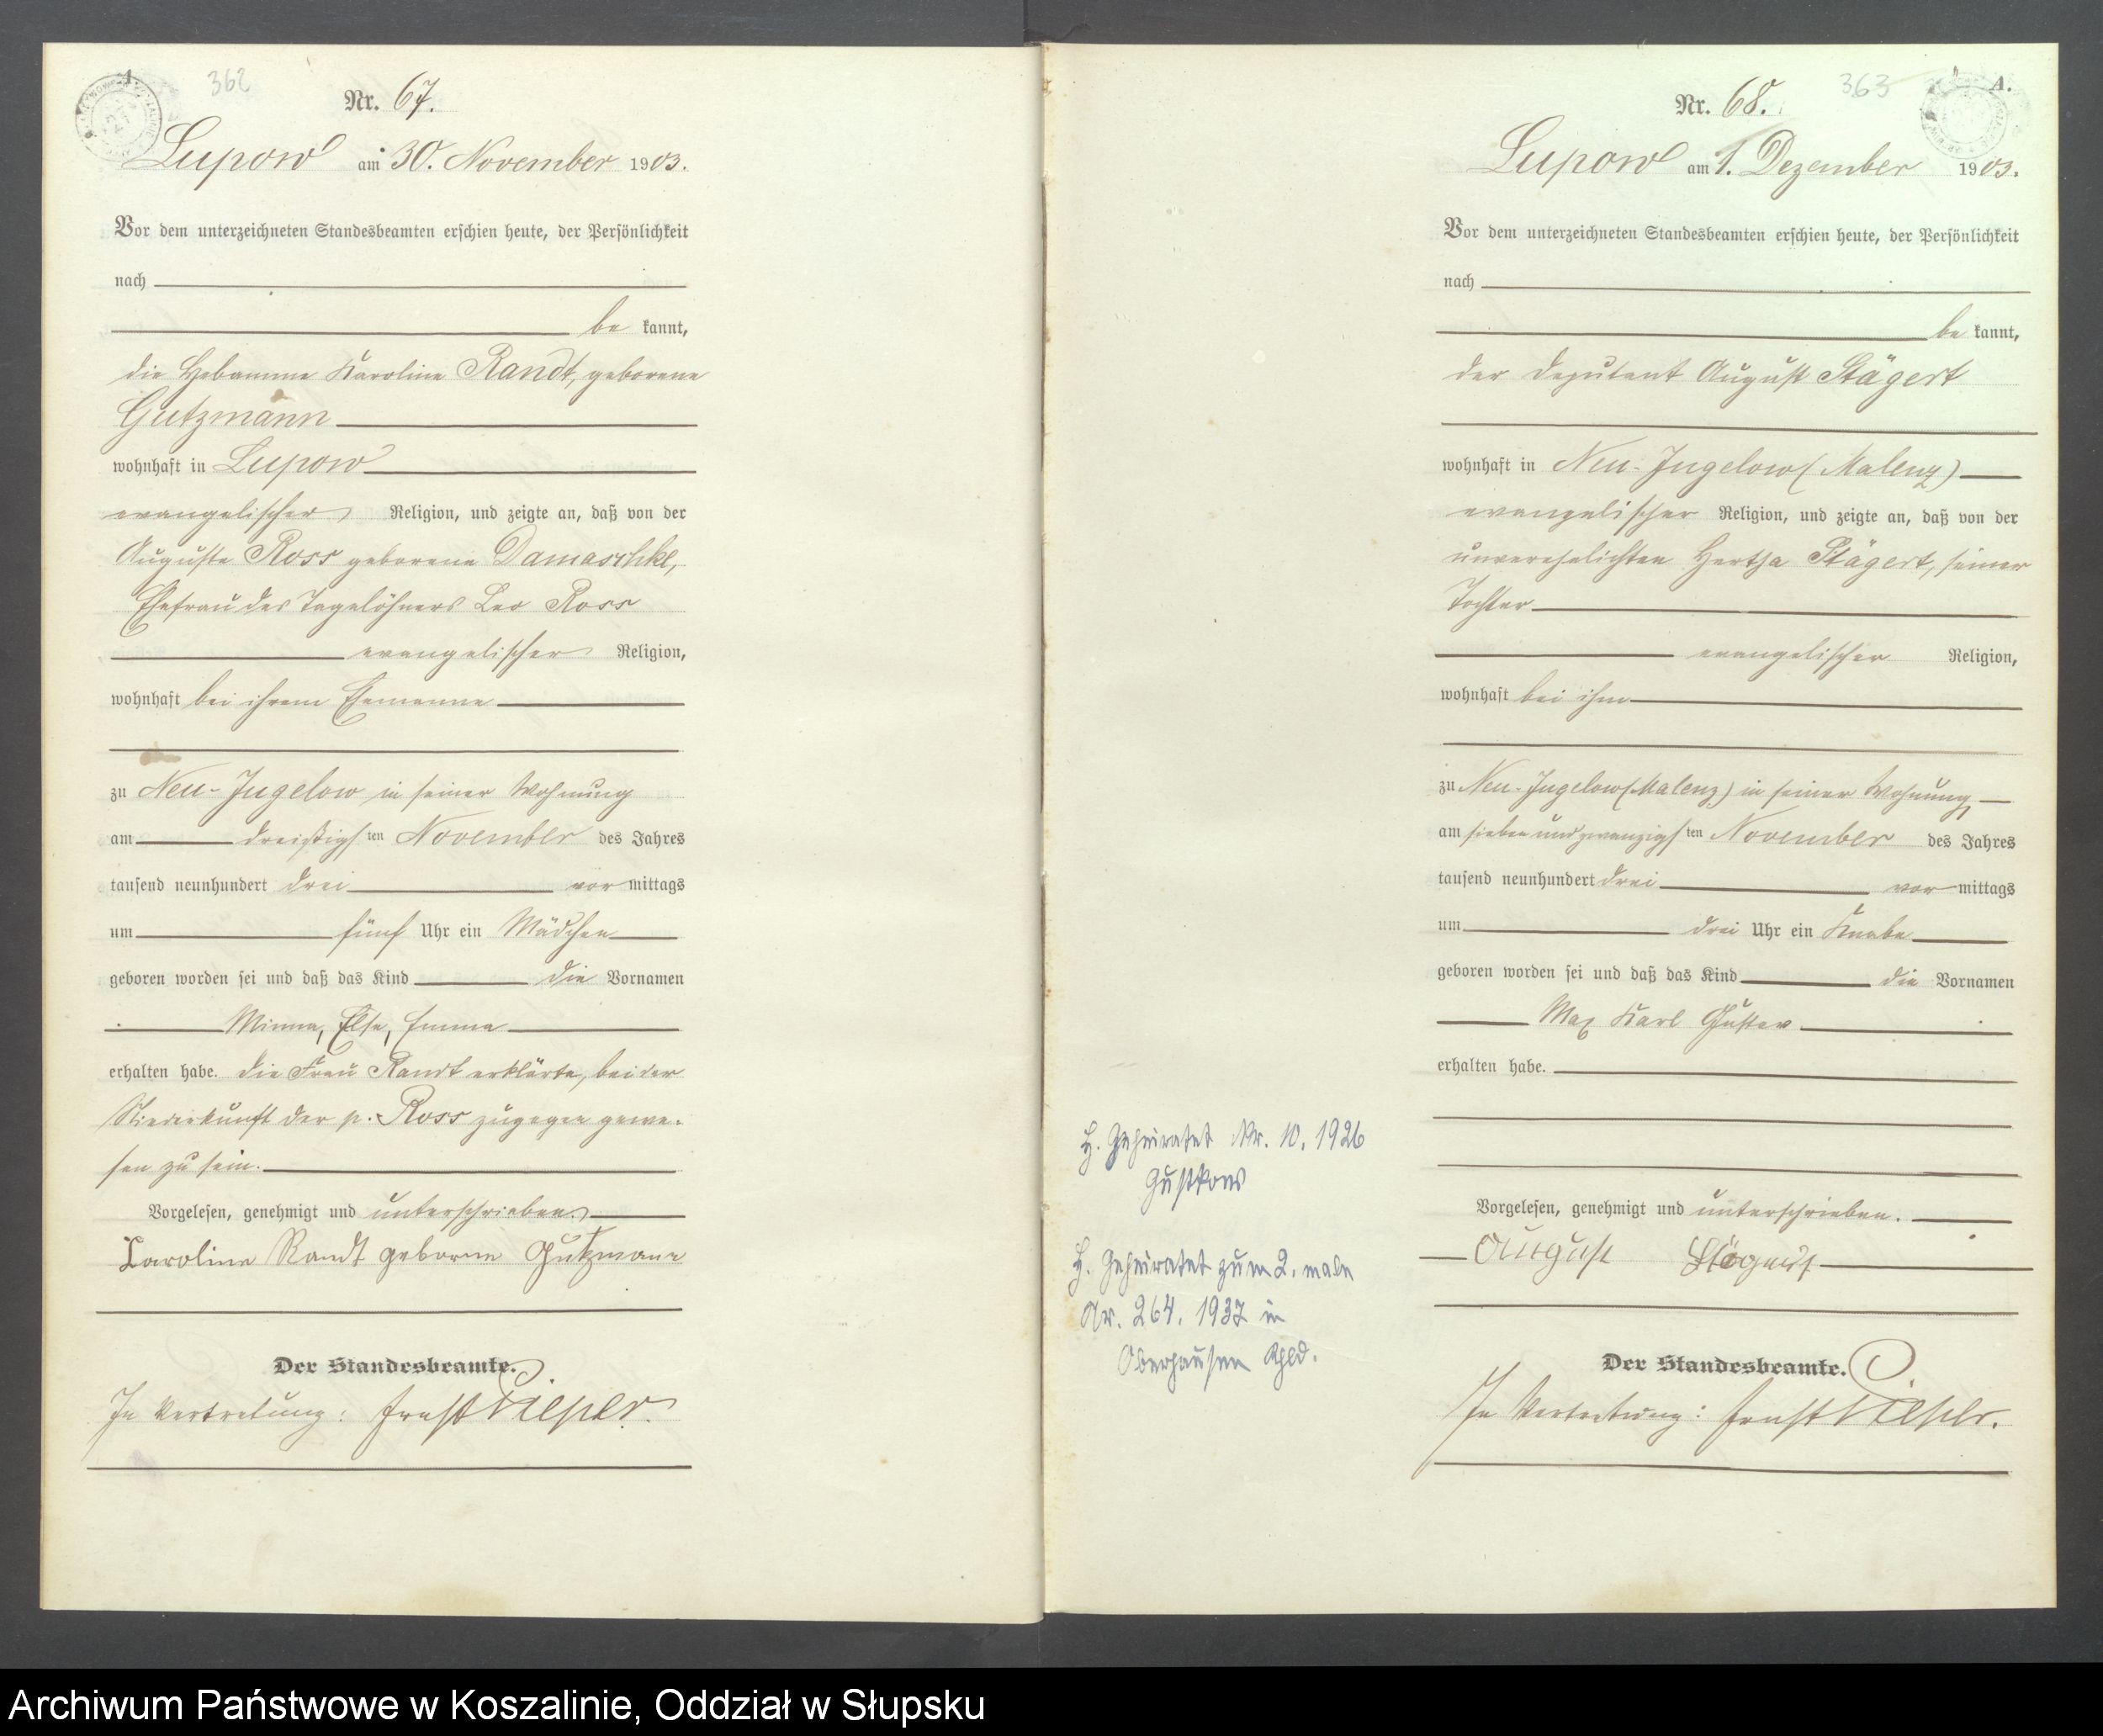 362
Nr. 67.
Lupow am 30. November 1903.
Vor dem unterzeichneten Standesbeamten erschien heute, der Persönlichkeit
nach
be kannt,
die Hebamme Karoline Randt, geborene
Gutzmann
wohnhaft in Lupow
evangelischer Religion, und zeigte an, daß von der
Auguste Ross geborene Damaschke,
Ehefrau des Tagelöhners Leo Ross
evangelischer Religion,
wohnhaft bei ihrem Ehemanne
zu Neu-Jugelow in seiner Wohnung
am dreißigs ten November des Jahres
tausend neunhundert drei vor mittags
um fünf Uhr ein Mädchen
geboren worden sei und daß das Kind die Vornamen
Minna, Else, Emma
erhalten habe. Die Frau Randt erklärte, bei der
Niederkunft der p. Ross zugegen gewe-
sen zu sein.
Vorgelesen, genehmigt und unterschrieben.
Caroline Randt geborne Gutzmann
Der Standesbeamte.
In Vertretung: Ernst Pieper.
363
A.
Nr. 68.
Lupow am 1. Dezember 1903.
Vor dem unterzeichneten Standesbeamten erschien heute, der Persönlichkeit
nach
be kannt,
der Deputant August Stägert
wohnhaft in Neu-Jugelow (Malenz)
evangelischer Religion, und zeigte an, daß von der
unverehelichten Hertha Stägert, seiner
Tochter
evangelischer Religion,
wohnhaft bei ihm
zu Neu-Jugelow (Malenz) in seiner Wohnung
am siebenundzwanzigs ten November des Jahres
tausend neunhundert drei vor mittags
um drei Uhr ein Knabe
geboren worden sei und daß das Kind die Vornamen
Max Karl Gustav
erhalten habe.
Vorgelesen, genehmigt und unterschrieben.
August Stägert
Der Standesbeamte.
In Vertretung: Ernst Pieper.
H. Geheiratet Nr. 10. 1926
Gustkow
H. Geheiratet zum 2. male
Nr. 264. 1937 in
Oberhausen Rhld.
Archiwum Państwowe w Koszalinie, Oddział w Słupsku